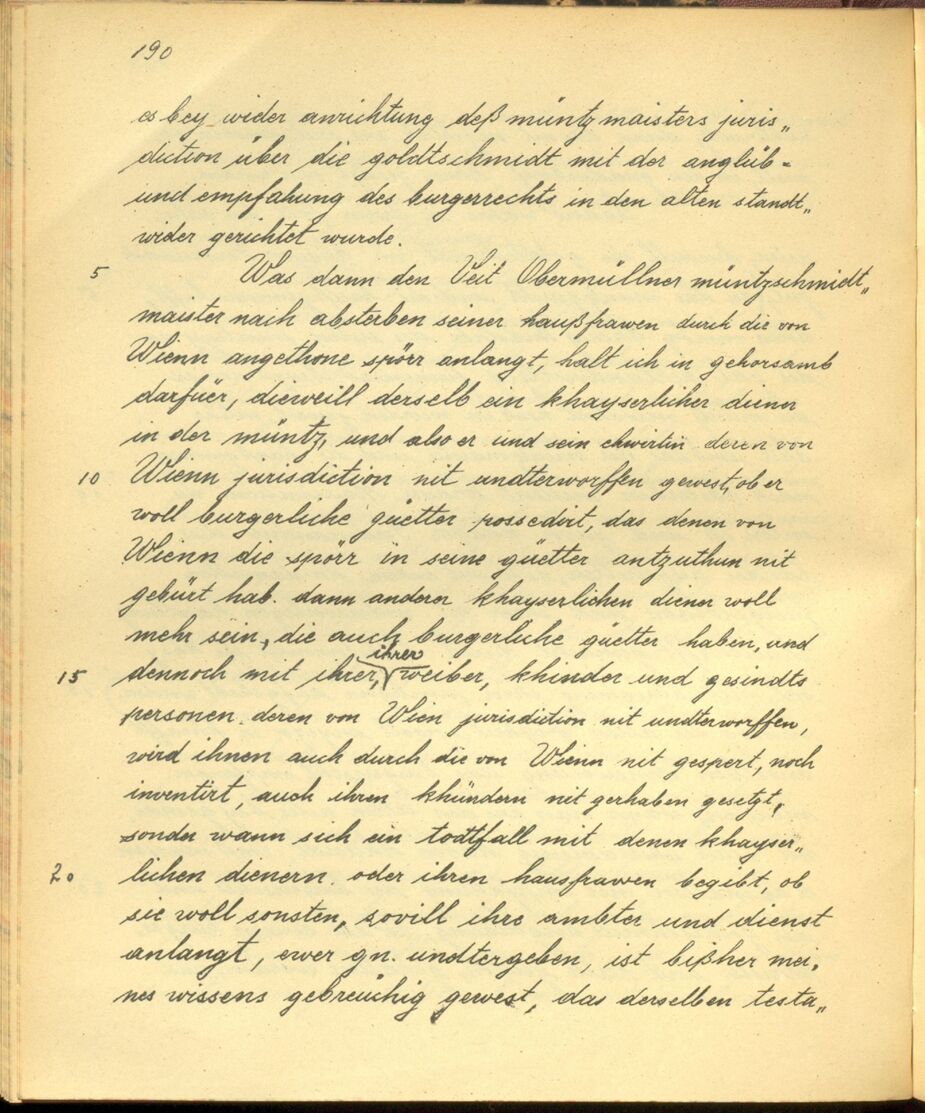 190
es bey wider anrichtung deß müntzmaisters juris„
diction über die goldtschmidt mit der anglüb=
und empfahung des burgerrechts in den alten standt„
wider gerichtet wurde.
5 Was dann den Veit Obermüllner müntzschmidt„
maister nach absterben seiner haußfrawen durch die von
Wienn angethone spörr anlangt, halt ich in gehorsamb
darfüer, dieweill derselb ein khayserlicher diener
in der müntz, und also er und sein ehwirtin deren von
10 Wienn jurisdiction nit undterworffen gewest, ob er
woll burgerliche güetter possedirt, das denen von
Wienn die spörr in seine güetter antzuthun nit
gebürt hab. dann anderer khayserlichen diener woll
mehr sein, die auch burgerliche güetter haben, und
ihrer
15 dennoch mit ihrer, weiber, khinder und gesindts
personen deren von Wien jurisdiction nit undterworffen,
wird ihnen auch durch die von Wienn nit gespert, noch
inventirt, auch ihren khündern nit gerhaben gesetzt,
sonder wann sich ein todtfall mit denen khayser„
20 lichen dienern oder ihren hausfrawen begibt, ob
sie woll sonsten, sovill ihre ambter und dienst
anlangt, ewer gn. undtergeben, ist bißher mei„
nes wissens gebreüchig gewest, das derselben testa„